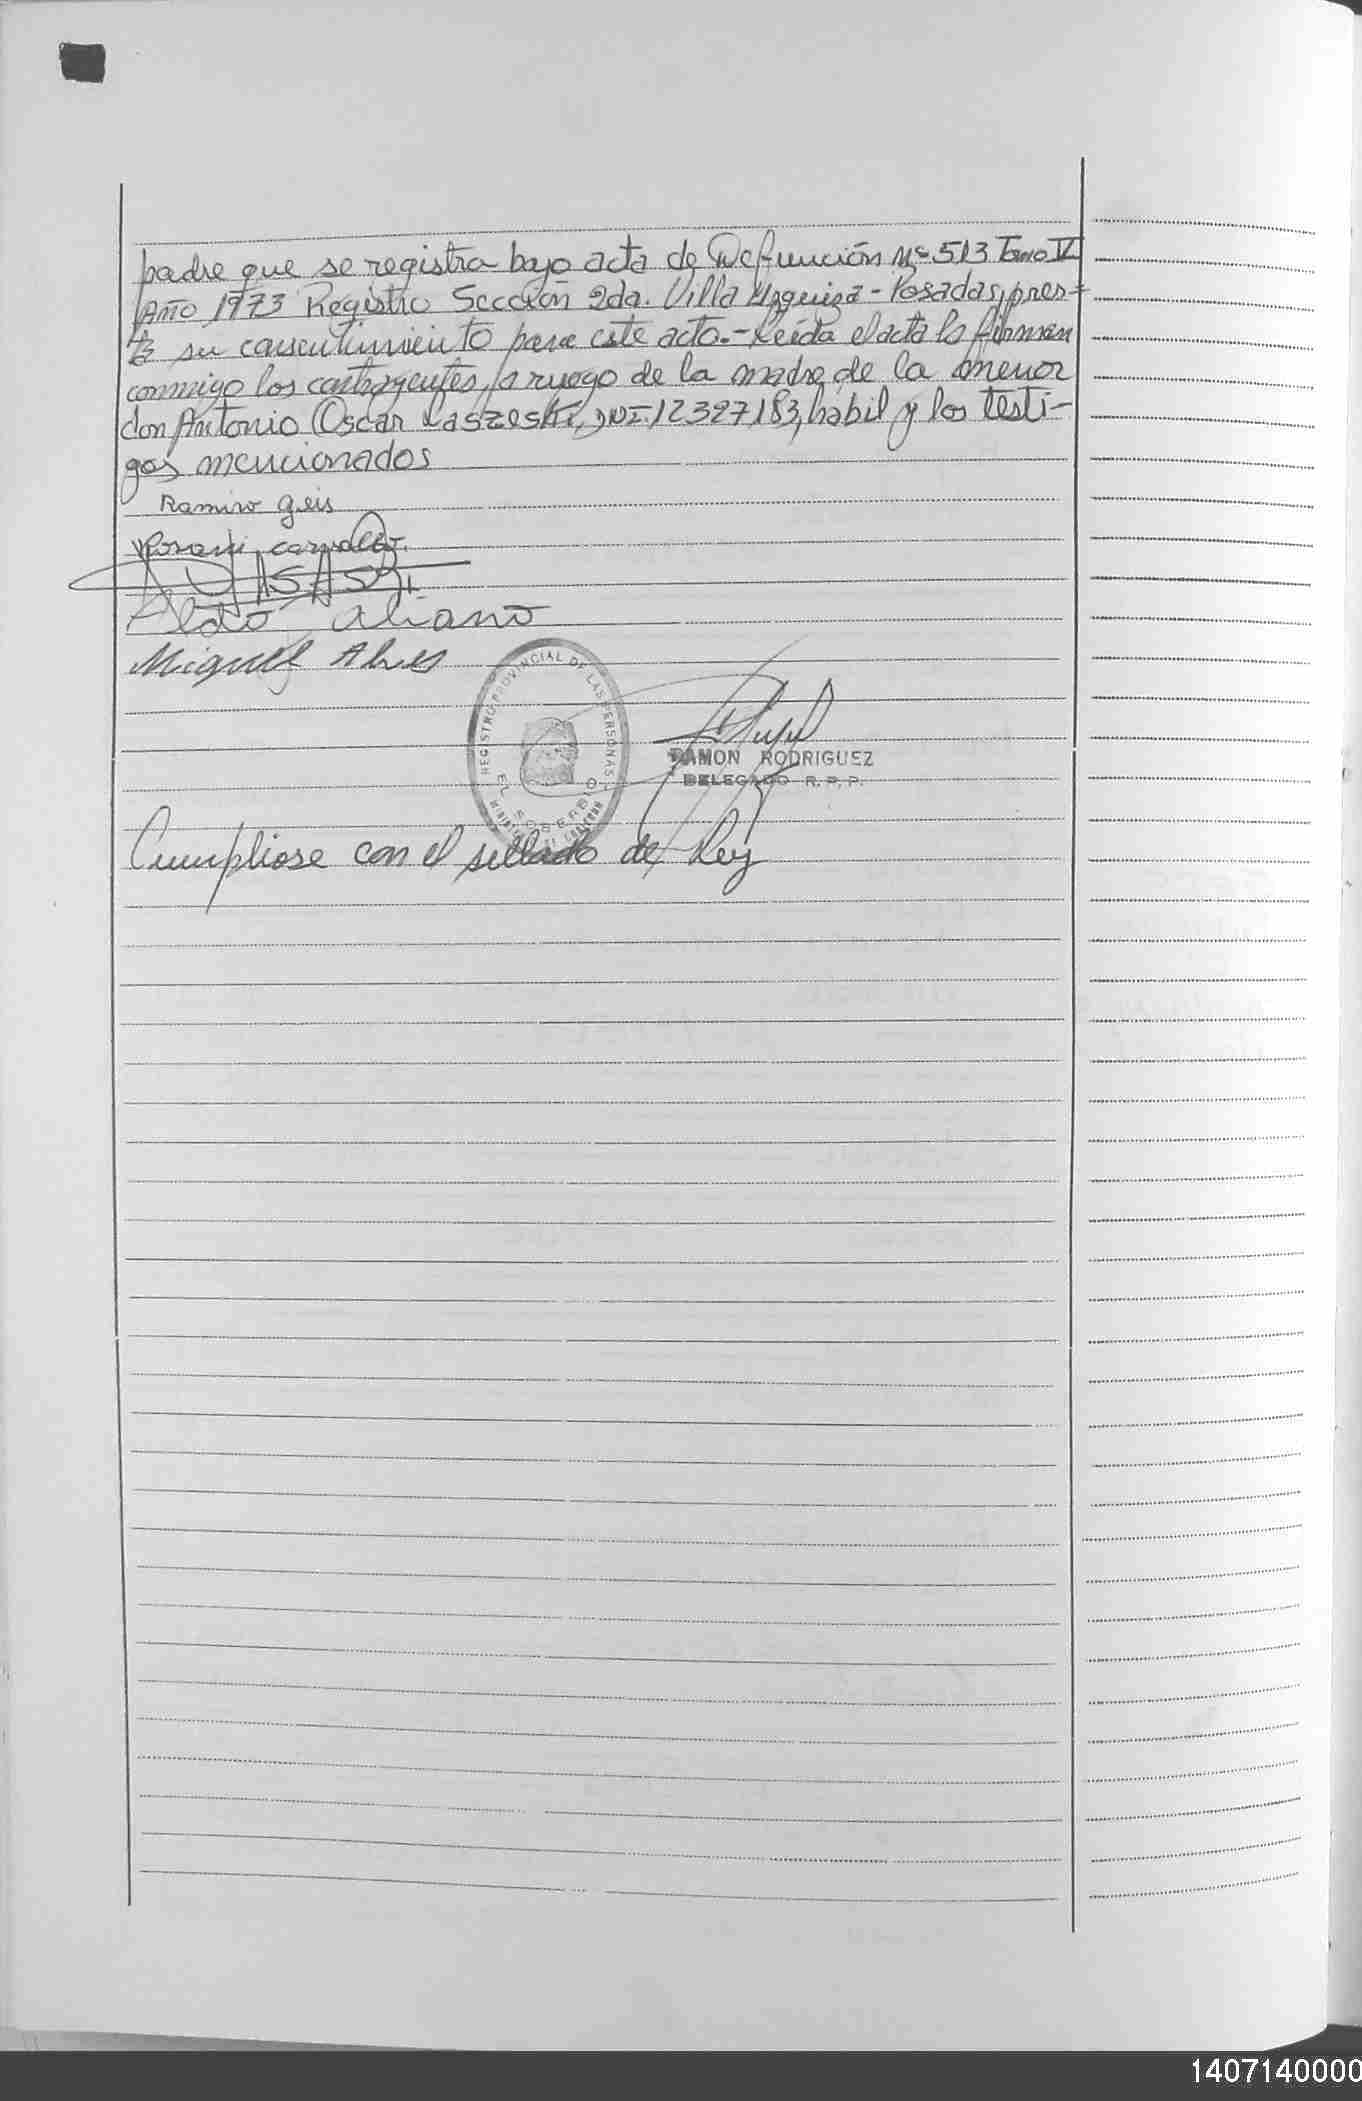 padre que se registra bajo acta de Defunción Nº 513 Tomo V
Año 1973 Registro Sección 2da. Villa Urquiza - Posadas, pres-
ta su consentimiento para este acto.- Leída el acta la firman
conmigo los contrayentes, a ruego de la madre de la menor
don Antonio Oscar Laszeski, DNI. 12327183, habil y los testi-
gos mencionados
Ramiro Geis
Aldo
Miguel Alves
REGISTRO PROVINCIAL DE LAS PERSONAS
EL SOBERBIO
RAMON RODRIGUEZ
DELEGADO R. P. P.
Cumpliose con el sellado de Ley
1407140000